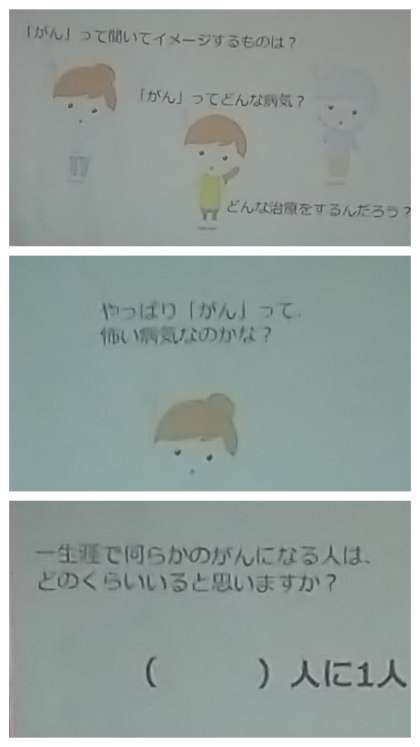 「がん」って聞いてイメージするものは？
「がん」ってどんな病気？
どんな治療をするんだろう？
やっぱり「がん」って、
怖い病気なのかな？
一生涯で何らかのがんになる人は、
どのくらいいると思いますか？
（　　　）人に1人